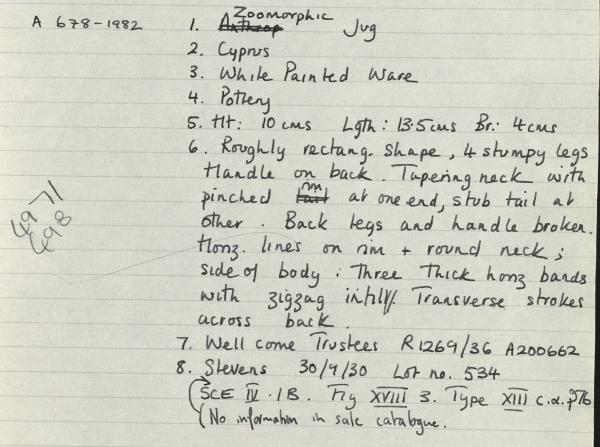 A 678-1982
Zoomorphic
1. Anthrop Jug
2. Cyprus
3. White Painted Ware
4. Pottery
5. Ht: 10 cms Lgth: 13.5cms Br.: 4cms
6. Roughly rectang. shape, 4 stumpy legs
Handle on back. Tapering neck with
pinched rim at one end, stub tail at
other. Back legs and handle broken.
Horiz. lines on rim + round neck;
side of body: Three thick horiz bands
with zigzag infill. Transverse strokes
across back.
7. Wellcome Trustees R1269/36 A200662
8. Stevens 30/9/30 Lot no. 534
SCE IV.1B. Fig XVIII 3. Type XIII c.a.
(No information in sale catalogue.
4971
698